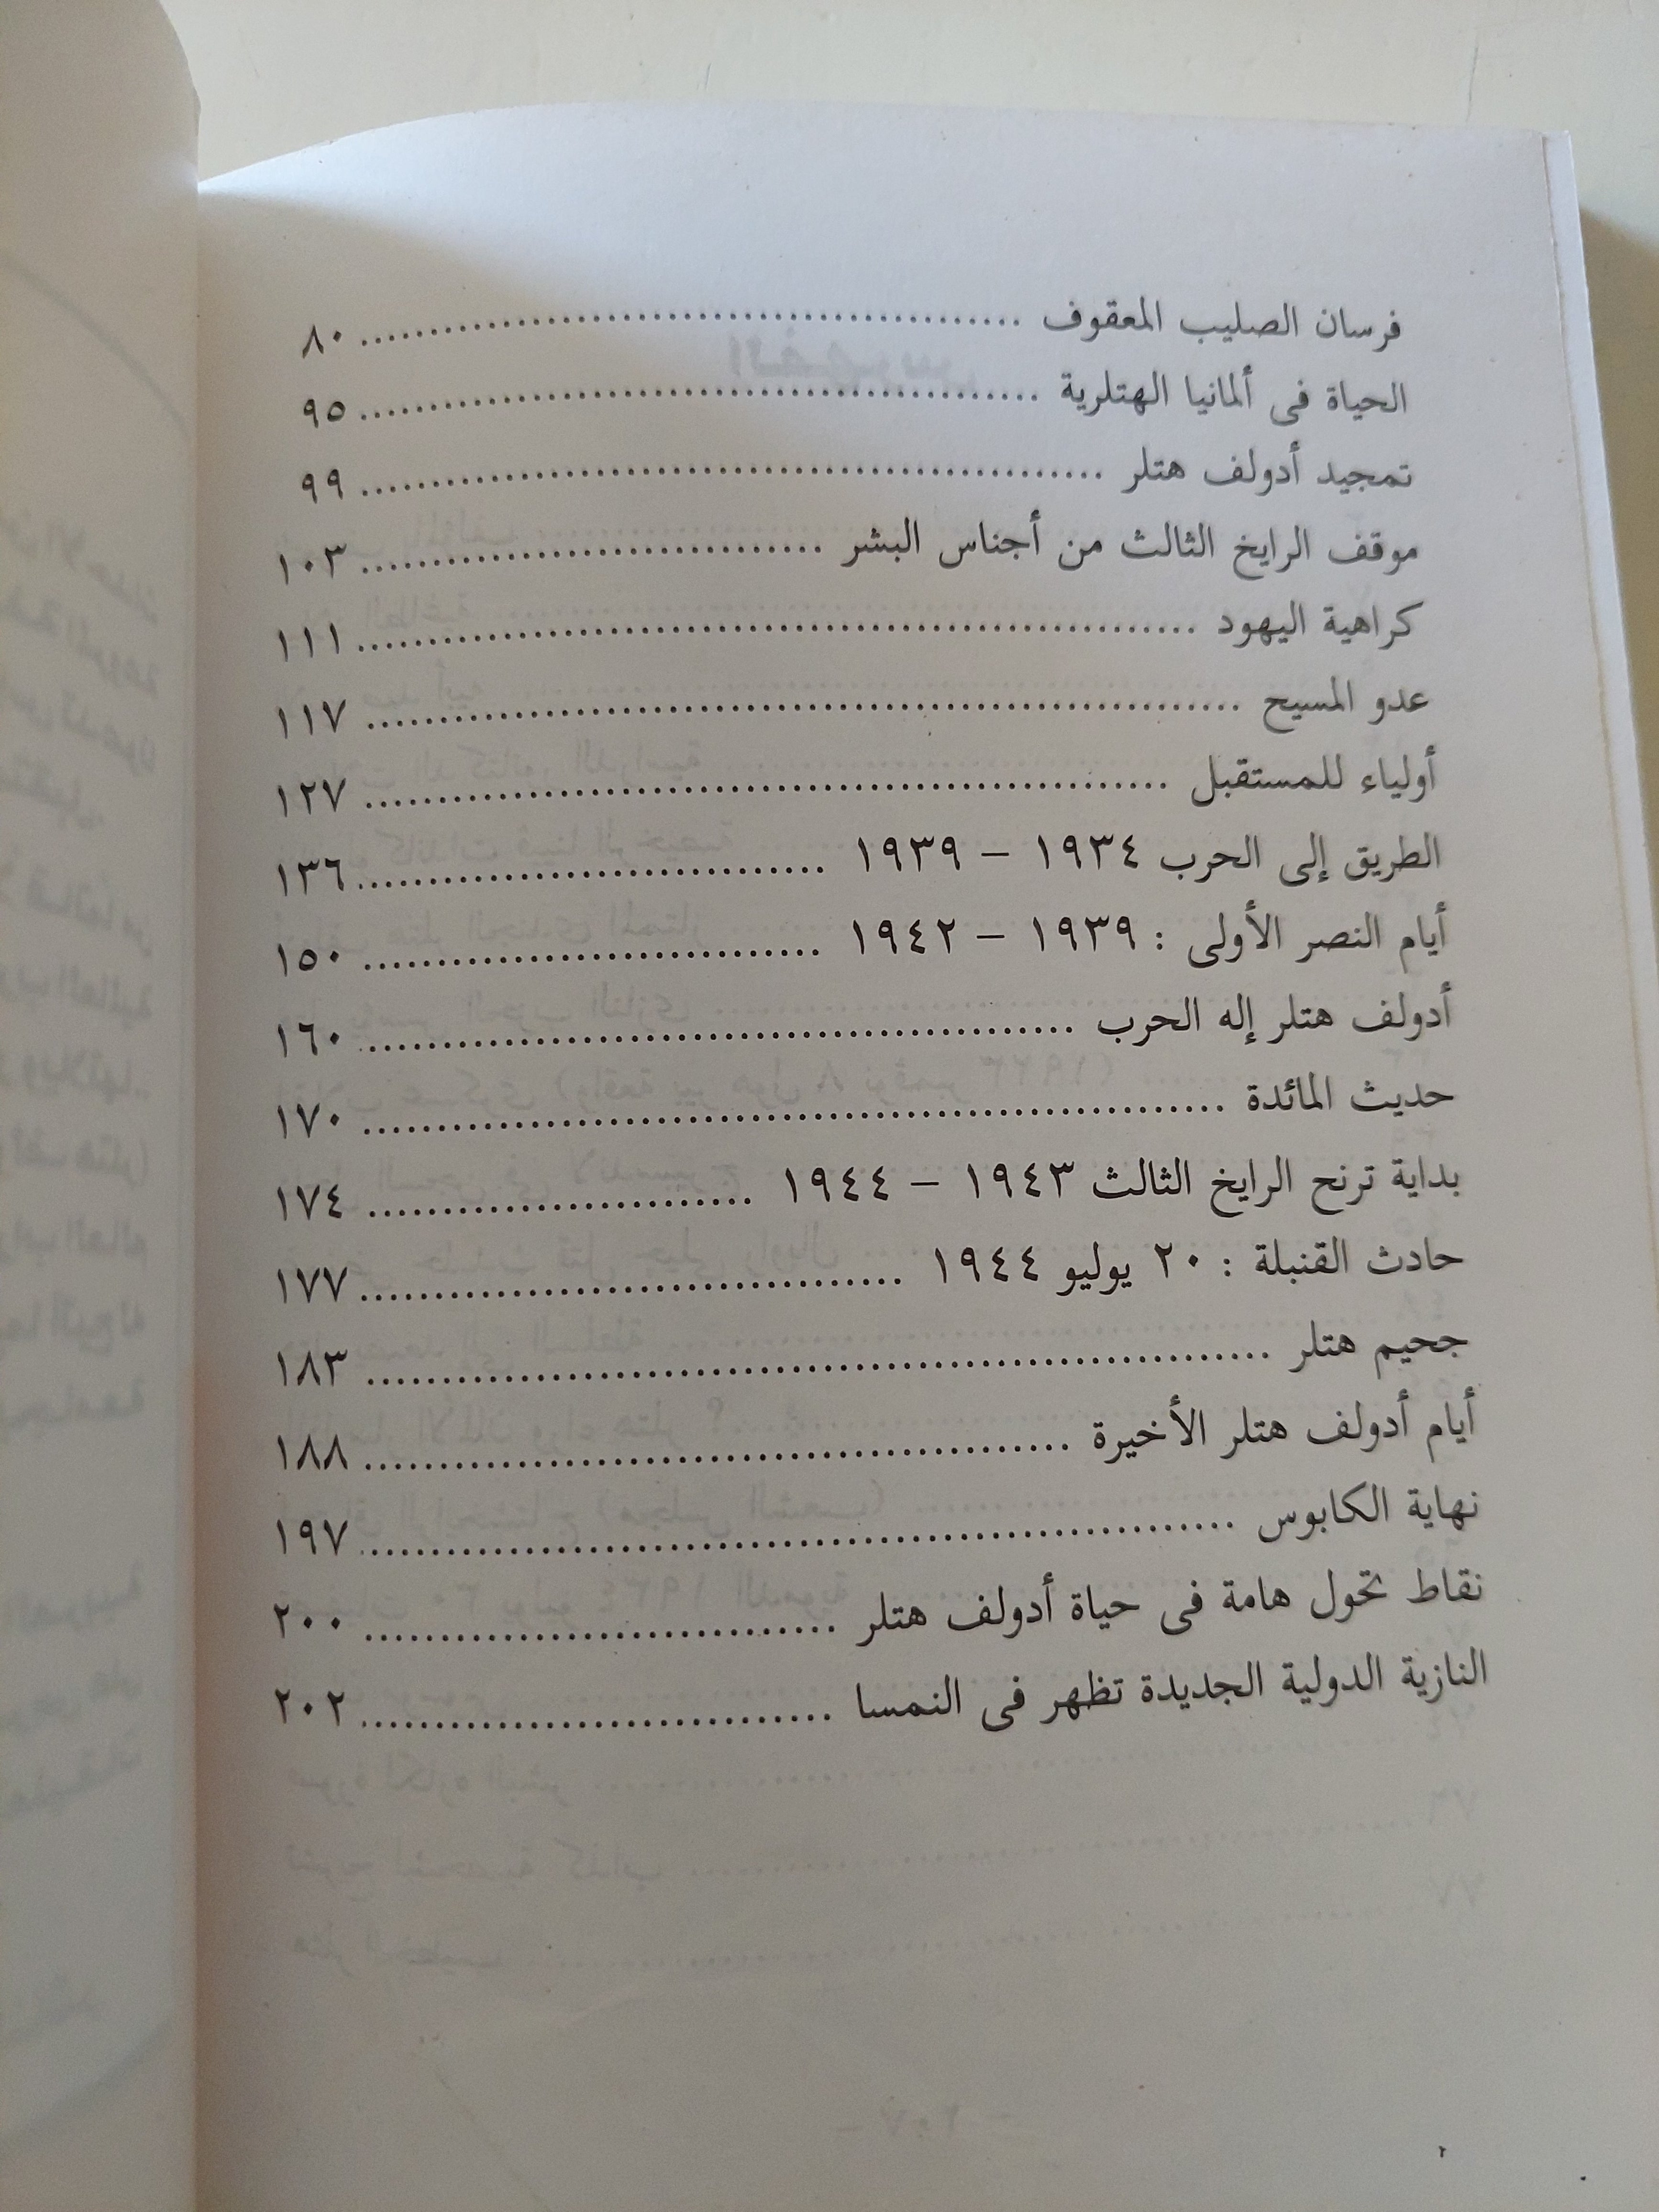 فرسان الصليب المعقوف ........ ٨٠
الحياة فى ألمانيا الهتلرية ........ ٩٥
تمجيد أدولف هتلر ........ ٩٩
موقف الرايخ الثالث من أجناس البشر ........ ١٠٣
كراهية اليهود ........ ١١١
عدو المسيح ........ ١١٧
أولياء للمستقبل ........ ١٢٧
الطريق إلى الحرب ١٩٣٤ – ١٩٣٩ ........ ١٣٦
أيام النصر الأولى : ١٩٣٩ – ١٩٤٢ ........ ١٥٠
أدولف هتلر إله الحرب ........ ١٦٠
حديث المائدة ........ ١٧٠
بداية ترنح الرايخ الثالث ١٩٤٣ – ١٩٤٤ ........ ١٧٤
حادث القنبلة : ٢٠ يوليو ١٩٤٤ ........ ١٧٧
جحيم هتلر ........ ١٨٣
أيام أدولف هتلر الأخيرة ........ ١٨٨
نهاية الكابوس ........ ١٩٧
نقاط تحول هامة فى حياة أدولف هتلر ........ ٢٠٠
النازية الدولية الجديدة تظهر فى النمسا ........ ٢٠٢